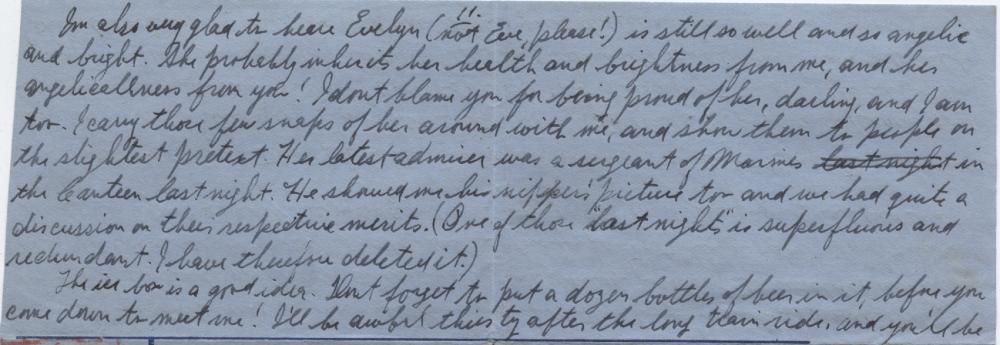 I'm also very glad to hear Evelyn (not!! Eve, please!) is still so well and so angelic
and bright. She probably inherits her health and brightness from me, and her
angelicallness from you! I dont blame you for being proud of her, darling, and I am
too. I carry those few snaps of her around with me, and show them to people on
the slightest pretext. Her latest admirer was a sergeant of Marines last night in
the Canteen last night. He showed me his nipper's picture too and we had quite a
discussion on their respective merits. (One of those "last nights" is superfluous and
redundant. I have therefore deleted it.)
The ice box is a good idea. Dont forget to put a dozen bottles of beer in it, before you
come down to meet me! I'll be awful thirsty after the long train ride, and you'll be